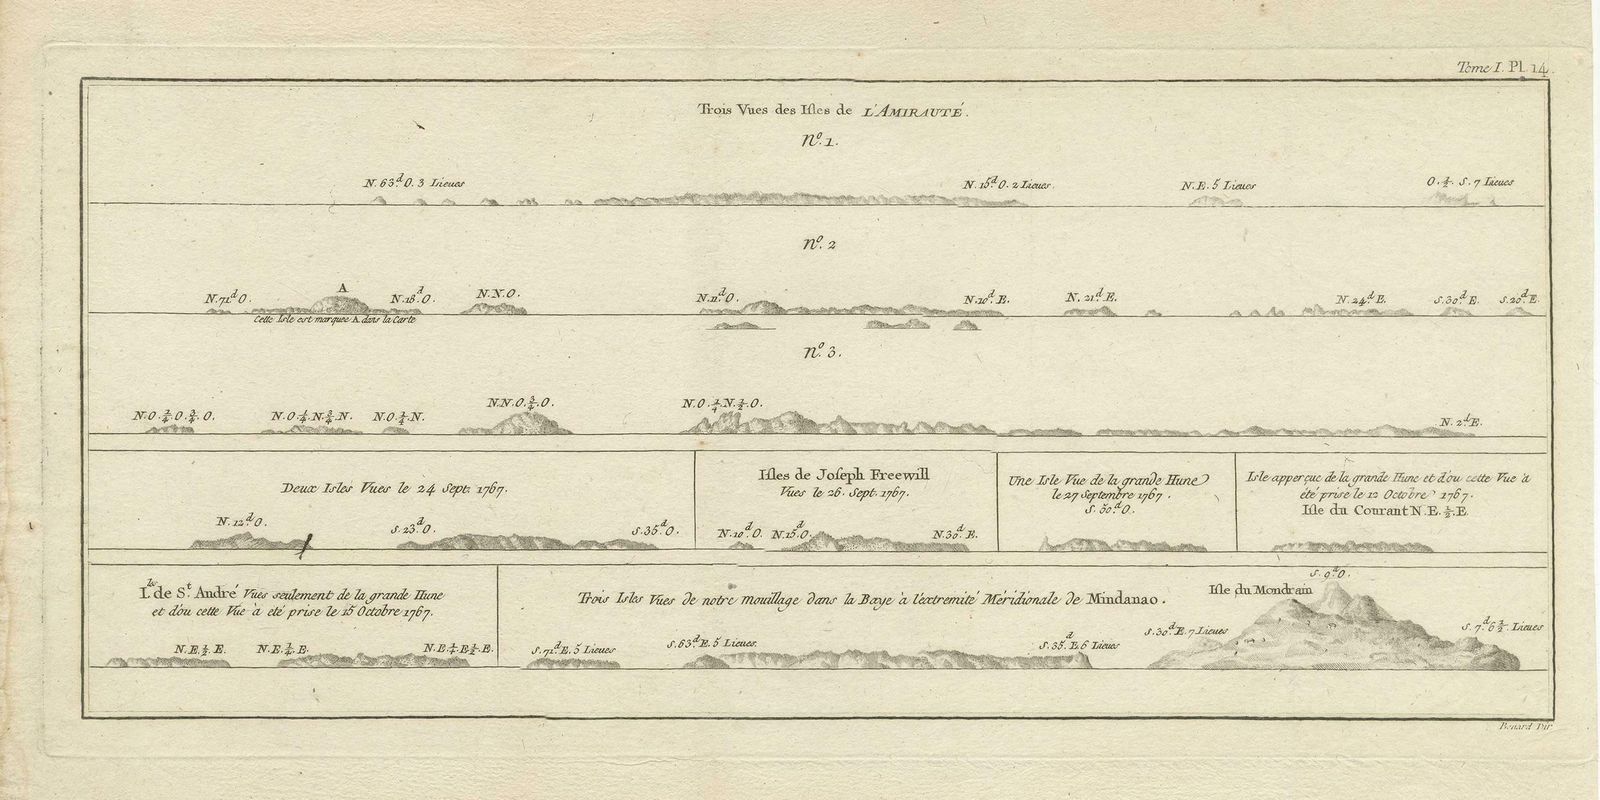 Tome I. Pl. 14.
Trois Vues des Isles de L'AMIRAUTÉ.
N.º 1.
N. 63.d O. 3 Lieues
N. 15.d O. 2 Lieues
N. E. 5 Lieues
O. ½ S. 7 Lieues
N.º 2
N. 71.d O.
A
N. 18.d O.
N. N. O.
N. 11.d O.
N. 10.d E.
N. 21.d E.
N. 24.d E.
S. 30.d E.
S. 20.d E.
Cette Isle est marquée A dans la Carte
N.º 3.
N. O. ¾ O. ¾ O.
N. O. ¼ N. ¾ N.
N. O. ½ N.
N. N. O. ¾ O.
N. O. ¼ N. ½ O.
N. 2.d E.
Deux Isles Vues le 24 Sept. 1767.
N. 12.d O.
S. 23.d O.
S. 35.d O.
Isles de Joseph Freewill
Vues le 26. Sept. 1767.
N. 10.d O.
N. 15.d O.
N. 30.d E.
Une Isle Vue de la grande Hune
le 27 Septembre 1767.
S. 50.d O.
Isle apperçue de la grande Hune et d'où cette Vue à
été prise le 12 Octobre 1767.
Isle du Courant N. E. ½ E
I.les de S.t André Vues seulement de la grande Hune
et d'où cette Vue à eté prise le 15 Octobre 1767.
N. E. ½ E.
N. E. ¼ E.
N. E. ¼ E ½ E.
Trois Isles Vues de notre mouillage dans la Baye à l'extremité Méridionale de Mindanao.
S. 71.d E. 5 Lieues
S. 63.d E. 5 Lieues
S. 35.d E. 6 Lieues
Isle du Mondrain
S. 9.d O.
S. 30.d E. 7 Lieues
S. 7.d 6 ½ Lieues
Benard Dir